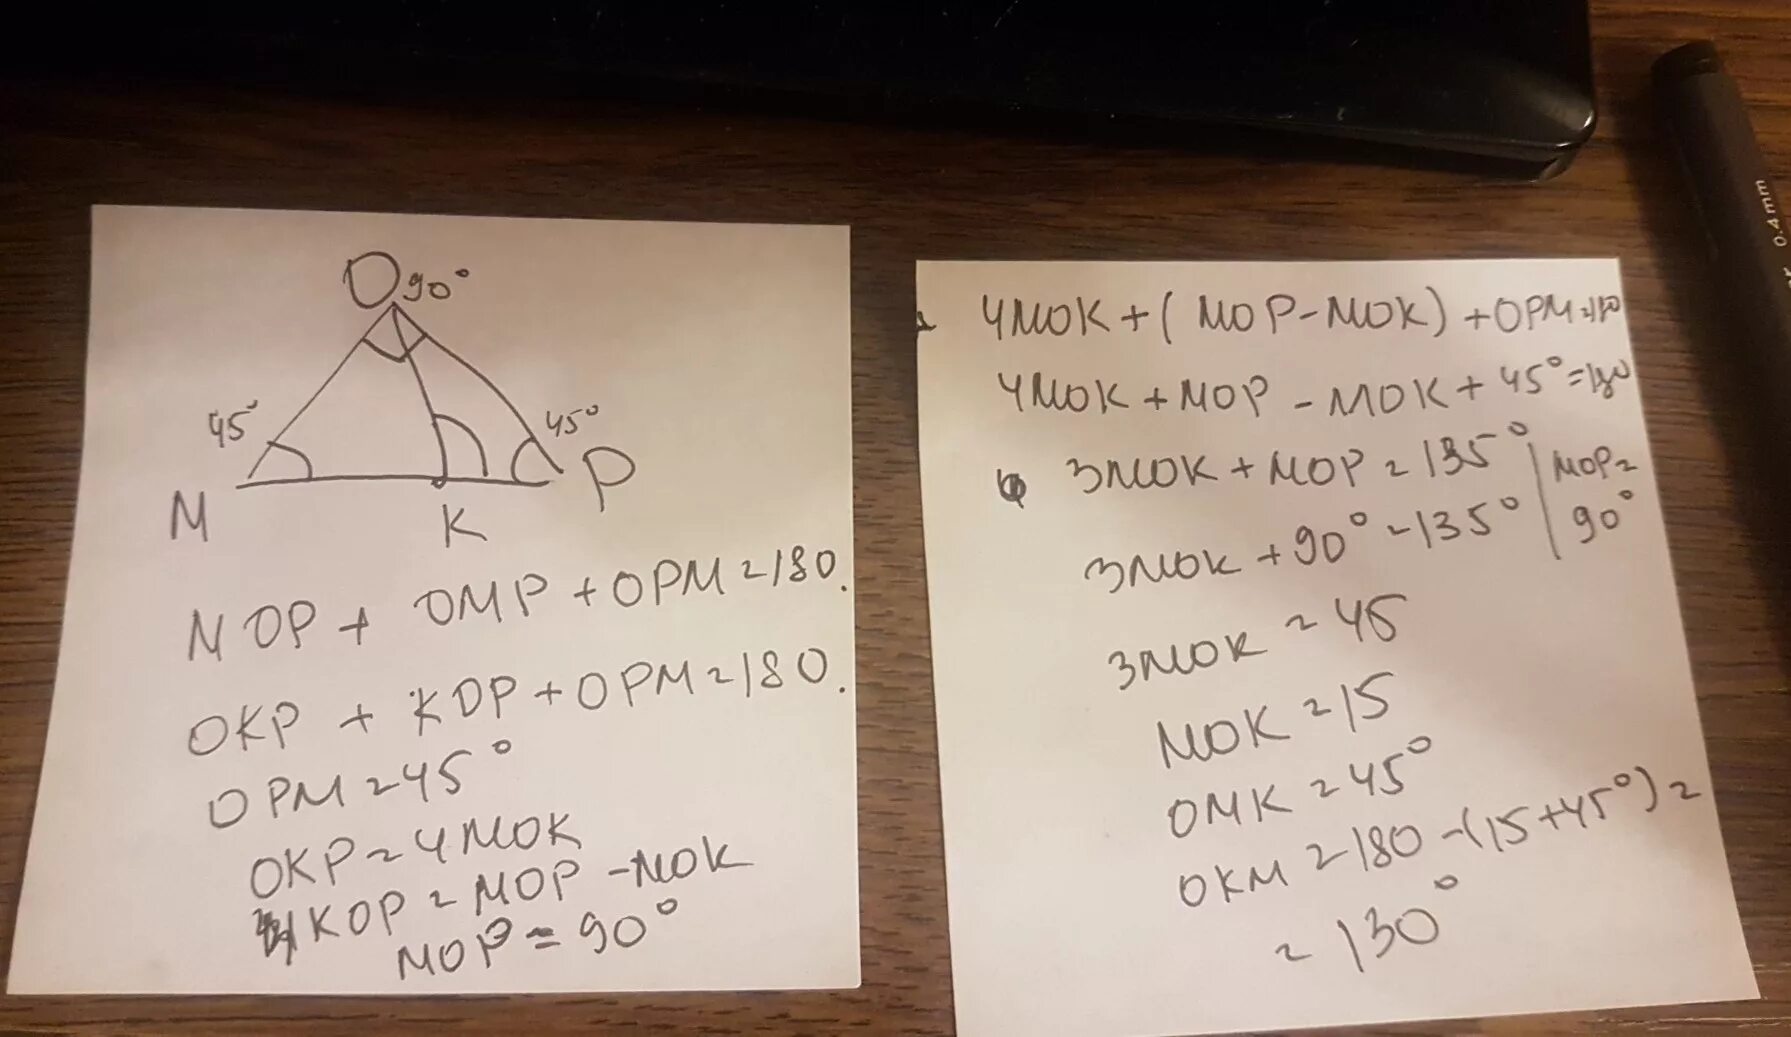 O 90°
45°
45°
M
K
P
MOP + OMP + OPM = 180.
OKP + KOP + OPM = 180.
OPM = 45°
OKP = 4MOK
KOP = MOP - MOK
MOP = 90°
4MOK + (MOP - MOK) + OPM = 180
4MOK + MOP - MOK + 45° = 180
3MOK + MOP = 135° | MOP =
3MOK + 90° = 135° | 90°
3MOK = 45
MOK = 15
OMK = 45°
OKM = 180 - (15 + 45°) =
= 130°
0.4mm